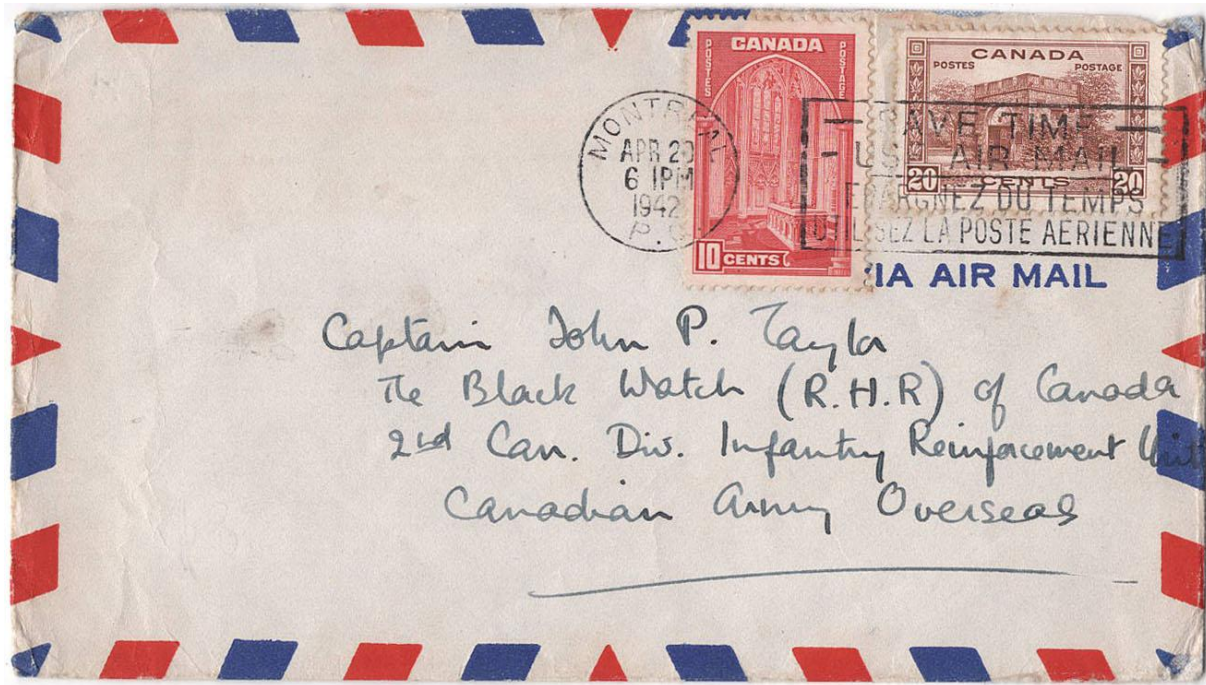 CANADA
POSTES
POSTAGE
10 CENTS
CANADA
POSTES POSTAGE
20 CENTS 20
MONTREAL
APR 20
6 1PM
1942
P.Q.
SAVE TIME
USE AIR MAIL
EPARGNEZ DU TEMPS
UTILISEZ LA POSTE AERIENNE
VIA AIR MAIL
Captain John P. Taylor
The Black Watch (R.H.R) of Canada
2nd Can. Div. Infantry Reinforcement Unit
Canadian Army Overseas